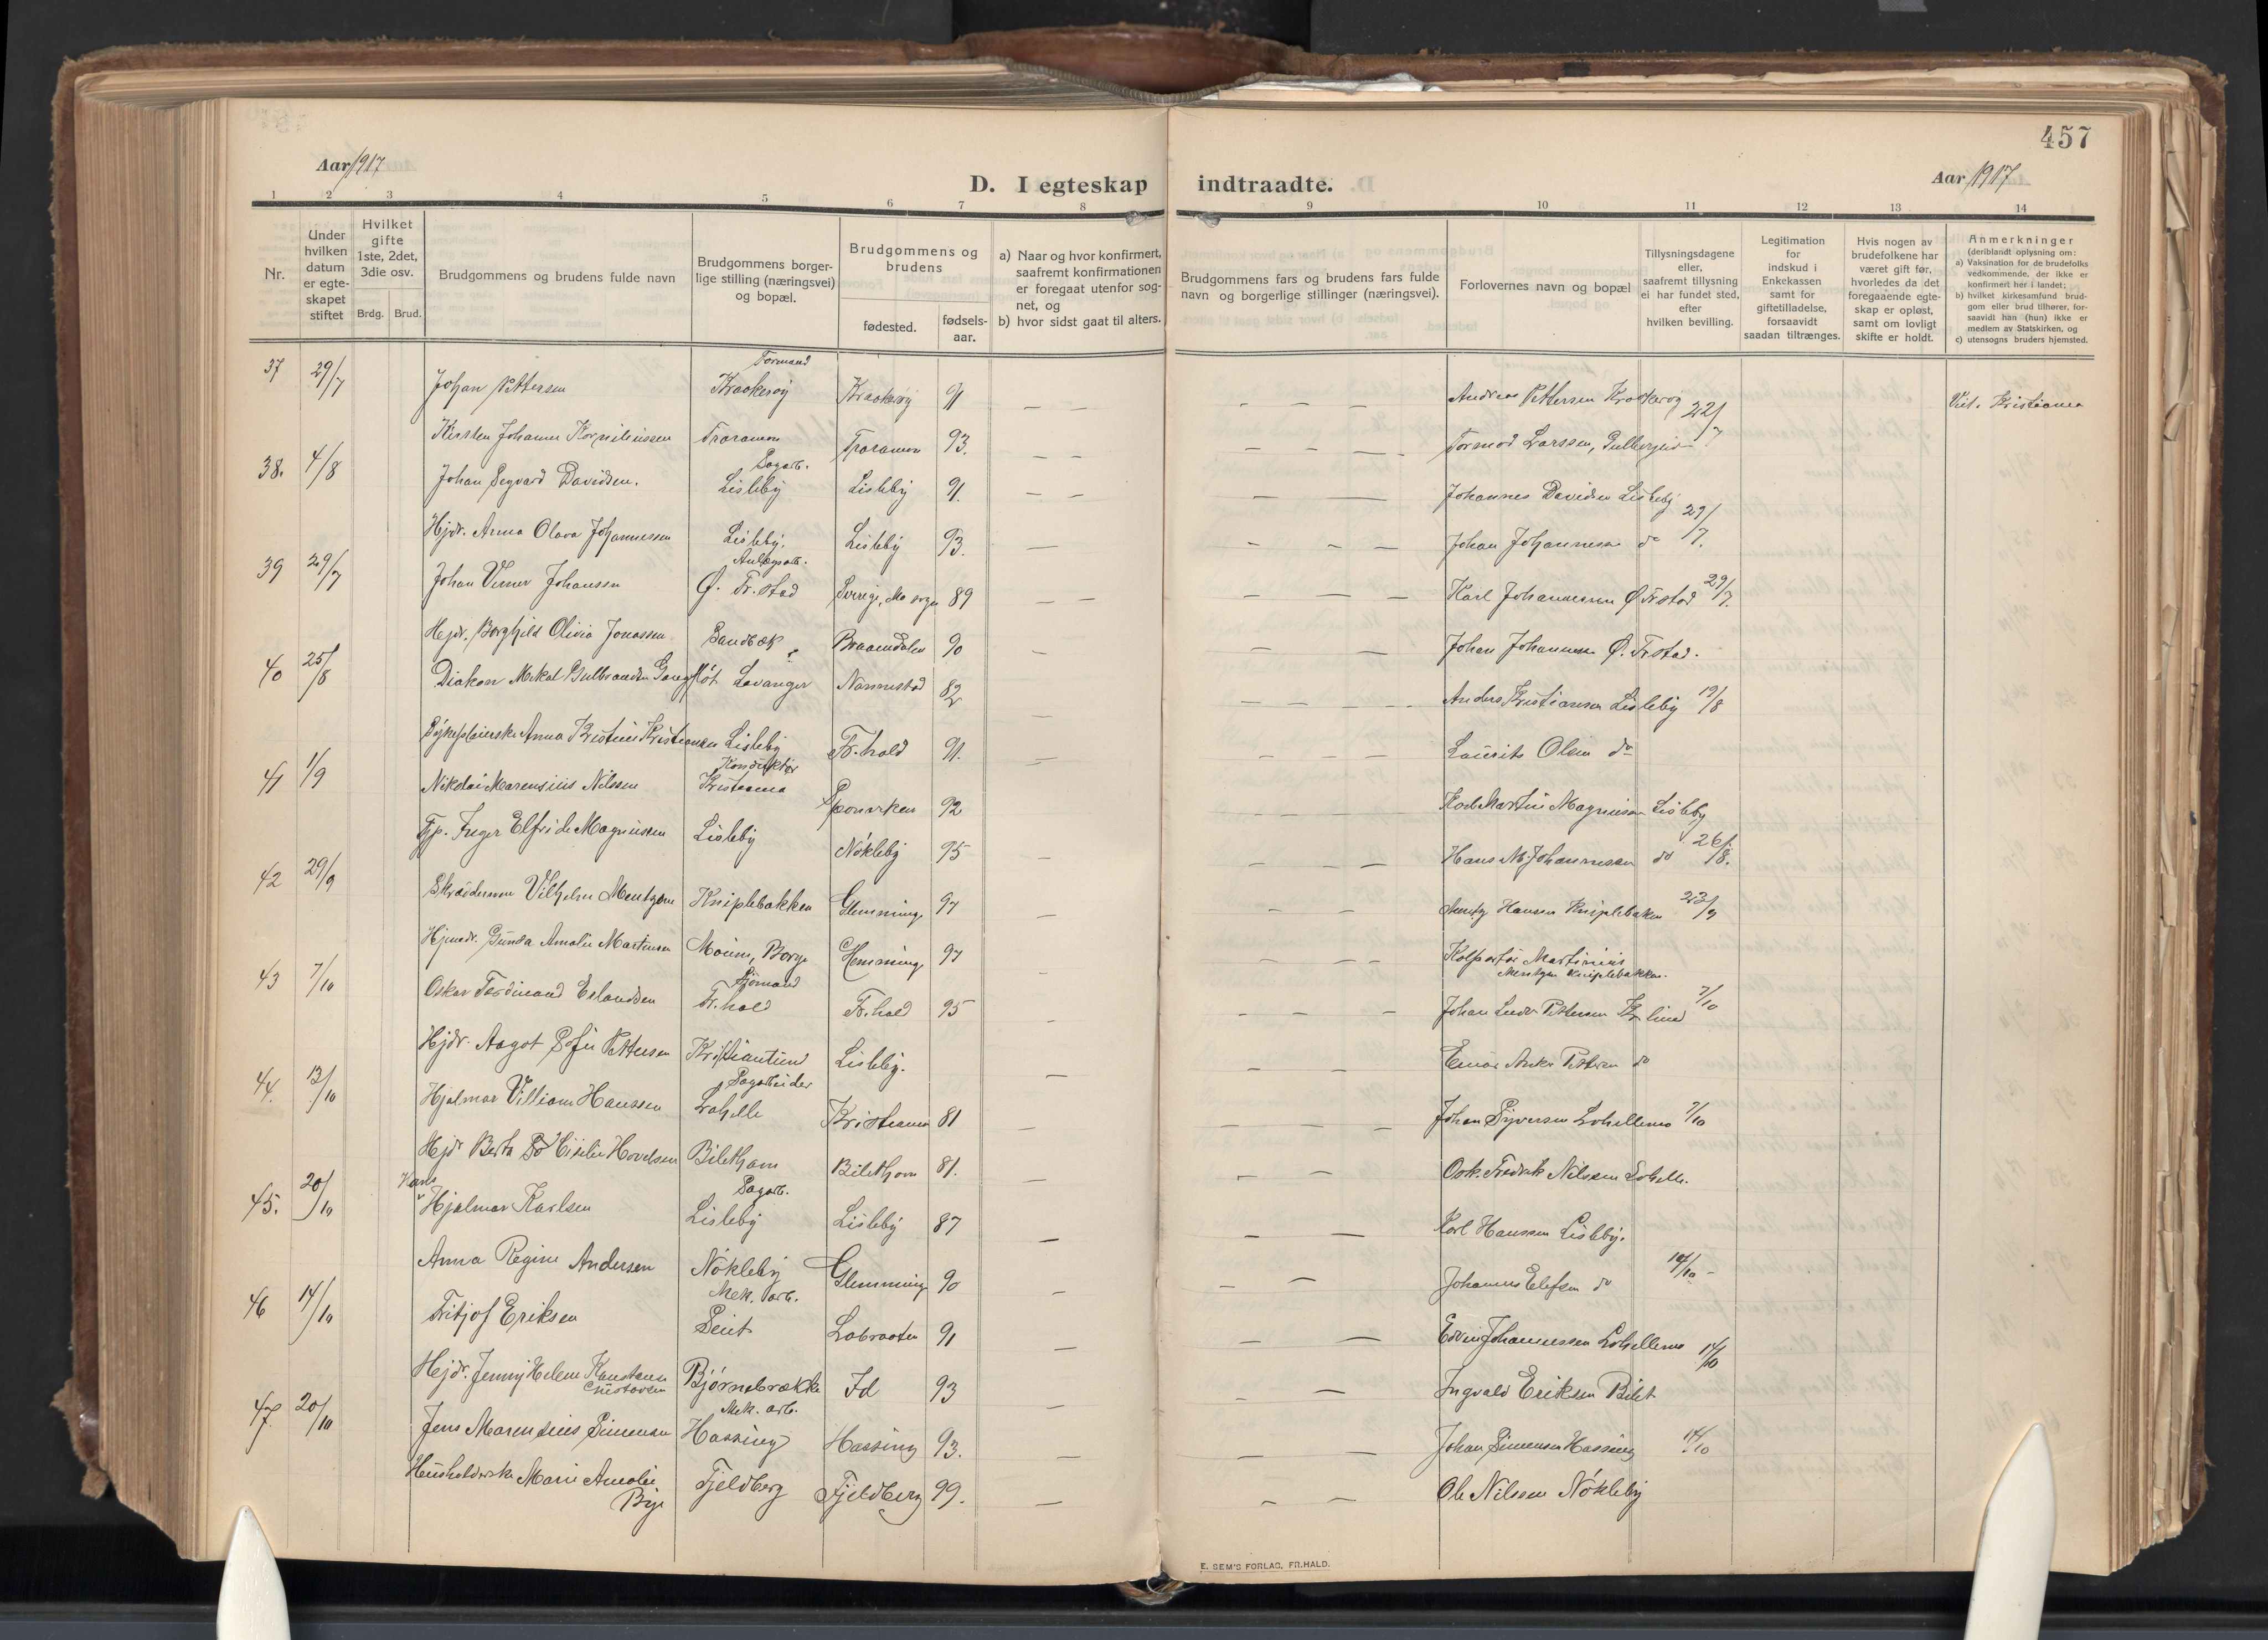 457
Aar 1917
Aar 1917
D. I egteskap indtraadte.
1 2 3 4 5 6 7 8 9 10 11 12 13 14
Nr.
Under hvilken datum er egteskapet stiftet
Hvilket gifte 1ste, 2det, 3die osv.
Brdg. Brud.
Brudgommens og brudens fulde navn
Brudgommens borgerlige stilling (næringsvei) og bopæl.
Brudgommens og brudens
fødested.
fødselsaar.
a) Naar og hvor konfirmert, saafremt konfirmationen er foregaat utenfor sognet, og
b) hvor sidst gaat til alters.
Brudgommens fars og brudens fars fulde navn og borgerlige stillinger (næringsvei).
Forlovernes navn og bopæl
Tillysningsdagene eller, saafremt tillysning ei har fundet sted, efter hvilken bevilling.
Legitimation for indskud i Enkekassen samt for giftetilladelse, forsaavidt saadan tiltrænges.
Hvis nogen av brudefolkene har været gift før, hvorledes da det foregaaende egteskap er opløst, samt om lovligt skifte er holdt.
Anmerkninger
(deriblandt oplysning om:
a) Vaksination for de brudefolks vedkommende, der ikke er konfirmert her i landet;
b) hvilket kirkesamfund brudgom eller brud tilhører, forsaavidt han (hun) ikke er medlem av Statskirken, og
c) utensogns bruders hjemsted.
37 29/7 Johan Pettersen Formand Kraakerøy Kraakerøy 91 — — — — — Andreas Pettersen Kraakerøy 22/7 Viet i Kristiania
Kirsten Johanne Korneliussen Traramon 93. — — — — — Tormod Larssen,
38. 4/8 Johan Segvard Davidsen. Sagarb. Lisleby Lisleby 91. — — — — Johannes Davidsen Lisleby 29/7.
Hjdr. Anna Olava Johannessen Lisleby. Lisleby 93. — — — — Johan Johannessen do
39 29/7 Johan Verner Johansen Anlægsarb. Ø. Fr.stad Sverige, Mo sogn 89 — — — — — Karl Johannessen Ø Frstad 29/7.
Hejdr. Borghild Olivia Jonassen Sandbæk Braaendalen 90 — — — Johan Johannessen Ø. Frstad.
40 25/8 Diakon Mikal Gulbrandsen Gangfløt Levanger ? Nannestad 82 — — — — — Anders Kristiansen Lisleby 19/8
Sykepleierske Anna Kristine Kristiansen Lisleby Fr.hald 91. — — — — Laurits Olsen do
41 1/9 Nikolai Marensius Nilssen Konduktør Kristiania Sponviken 92 — — — — Karl Martin Magnussen Lisleby 26/8.
Tjp. Inger Elfride Magnussen Lisleby Nøkleby 95 — — — — Hans M. Johannessen do
42 29/9 Skræddersven Vilhelm Mentzoni Kniplebakken Glemminge 97 — — — Mentz Hansen Kniplebakken 23/9
Hjmdr. Gunda Amalie Martinsen Moum, Borge Glemminge 97 — — — — Kolportør Martinius
Mentzen Kniplebakken.
43 7/10 Oskar Ferdinand Erlandsen Sjømand Fr.hald Fr.hald 95 — — — — Johan Ludv. Pettersen Kr.lund 7/10
Hjdr. Aagot Sofie Pettersen Kristianlund Lisleby. — — — Einar Anker Pettersen do
44. 13/10 Hjalmar Villiam Hanssen Sagarbeider Lahelle Kristiania 81 — — — — Johan Syversen Lahellemo 7/10
Hejdr Berta Cesilie Hovelsen Biletham Biletham 81. — — — Osk. Fredrik Nilssen Lahelle.
45. 20/10 Hans Hjalmar Karlsen Sagarb. Lisleby Lisleby 87 — — — Karl Hanssen Lisleby. 14/10 —
Anna Regine Andersen Nøkleby Glemminge 90 — — — Johannes Elefsen do
46 14/10 Fritjof Eriksen Mek. arb. Seut Labraaten 91 — — — Edvin Johannessen Lahellemo 14/10
Hejdr. Jenny Helene Konstanse Gustavsen Bjørnebrække Id 93 — — — Ingvald Eriksen Bilet
47 20/10 Jens Marensius Simensen Mek. arb. Hassing Hassing 93. — — — Johan Simensen Hassing 14/10
Husholderske Marie Amalie Bye Fjeldberg Fjeldberg 99. — — — Ole Nilssen Nøkleby
E. SEM'S FORLAG, FR.HALD.